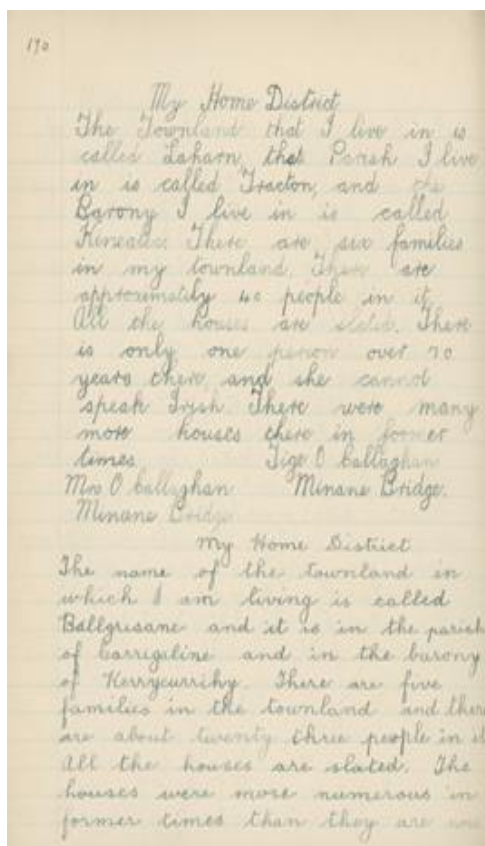 190
My Home District
The Townland that I live in is
called Laharn, that Parish I live
in is called Tracton, and the
Barony I live in is called
Kinealea. There are six families
in my townland. There are
approximately 40 people in it.
All the houses are slated. There
is only one person over 70
years there, and she cannot
speak Irish. There were many
more houses there in former
times. Tige O Callaghan
Mrs O Callaghan Minane Bridge.
Minane Bridge
My Home District
The name of the townland in
which I am living is called
Ballgrisane and it is in the parish
of Carrigaline and in the barony
of Kerrycurrihy. There are five
families in the townland and there
are about twenty three people in it
All the houses are slated. The
houses were more numerous in
former times than they are now